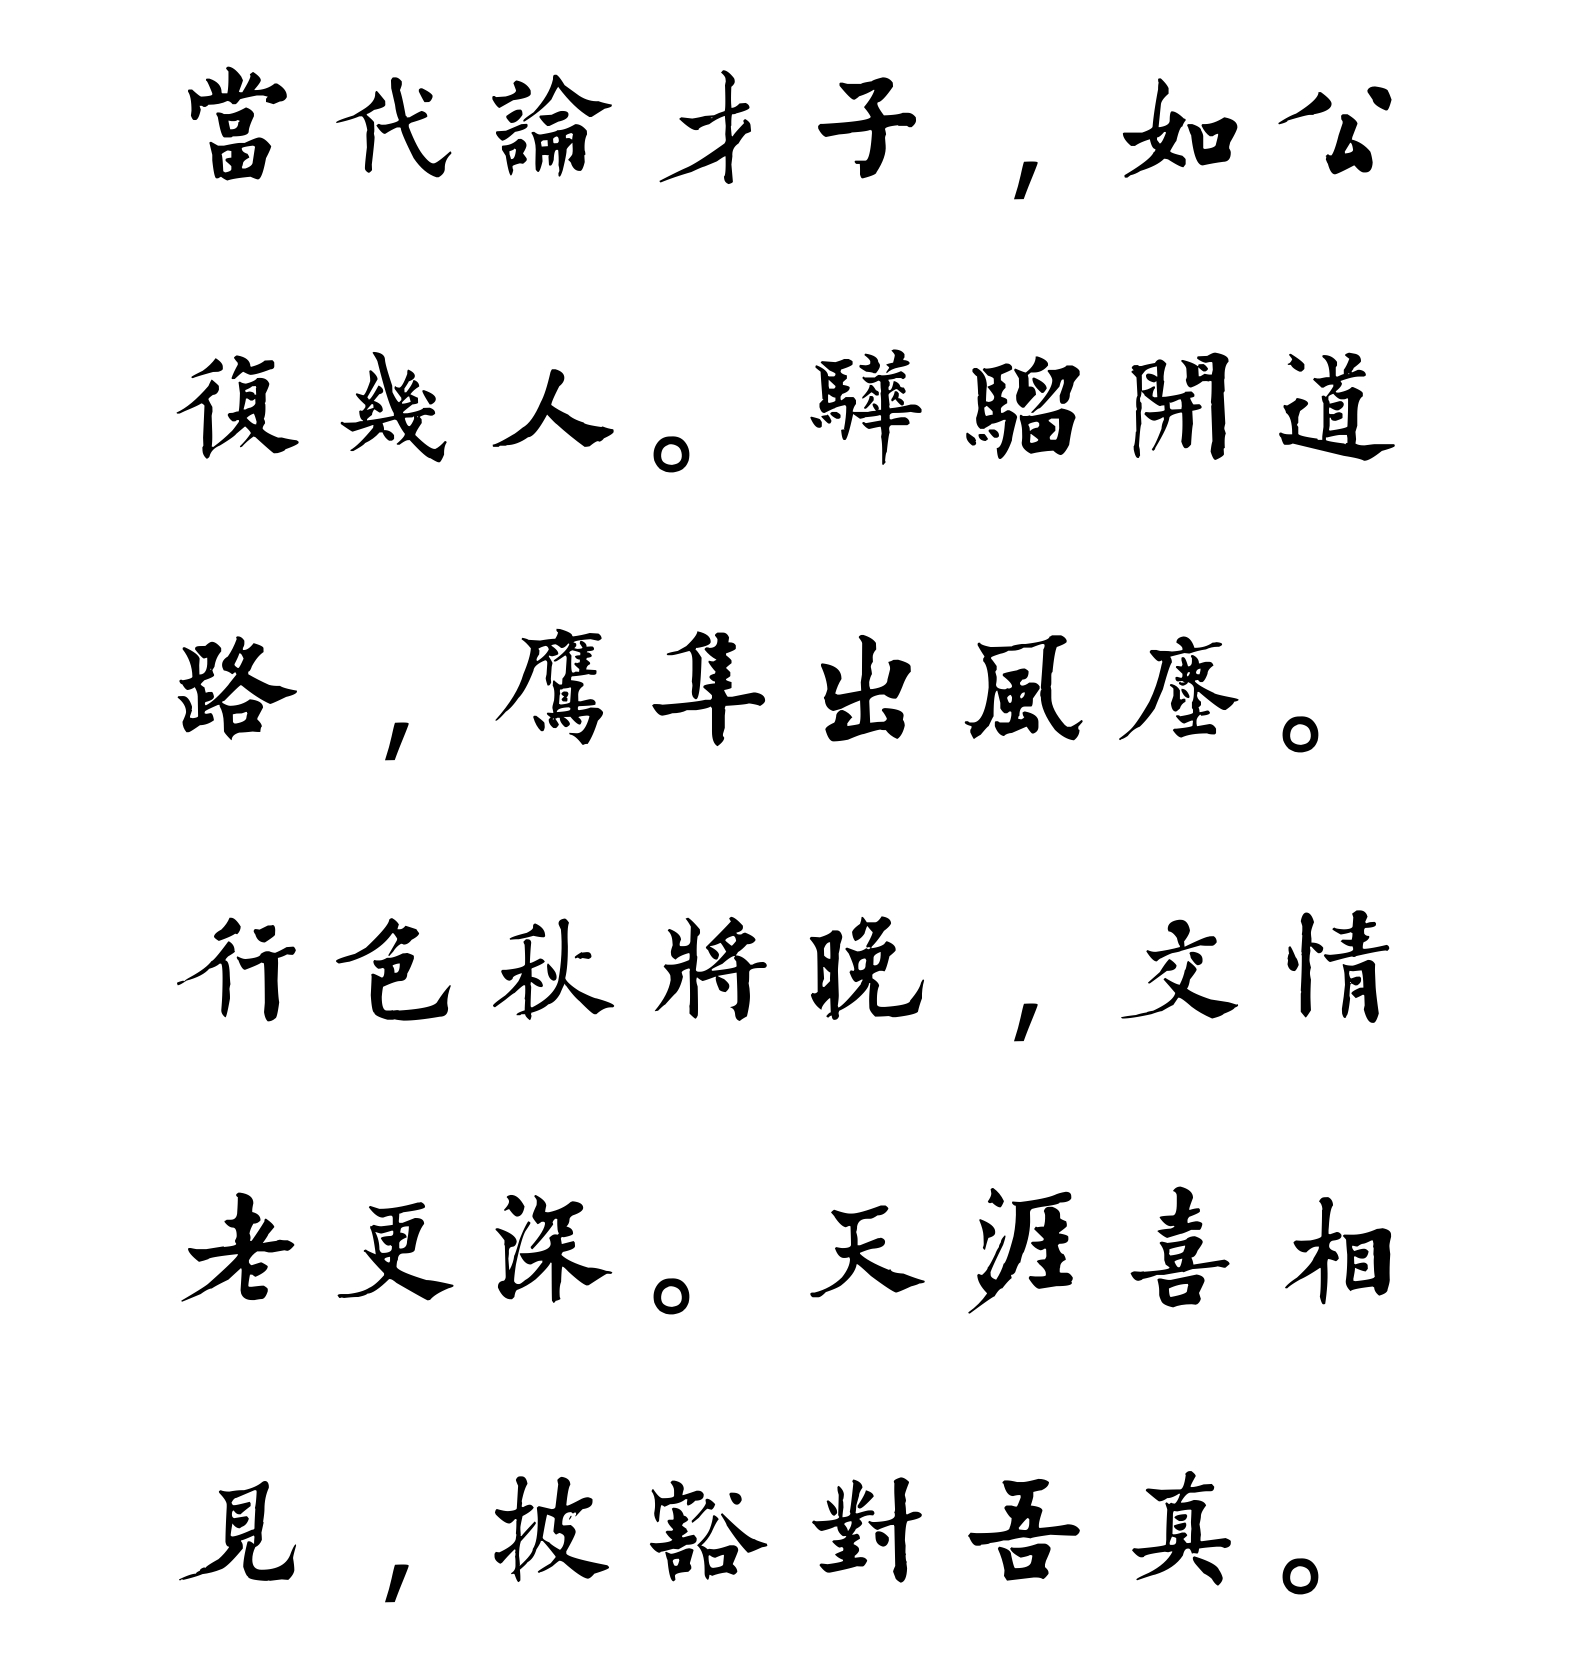 當代論才子，如公
復幾人。驊騮開道
路，鷹隼出風塵。
行色秋將晚，交情
老更深。天涯喜相
見，披豁對吾真。